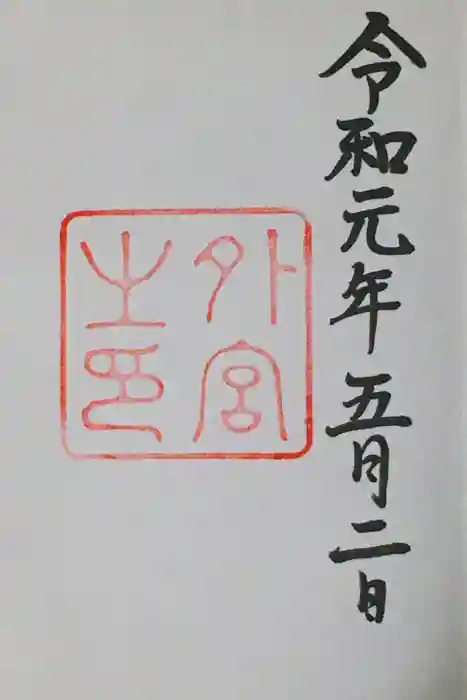 令和元年五月二日
外宮
之印